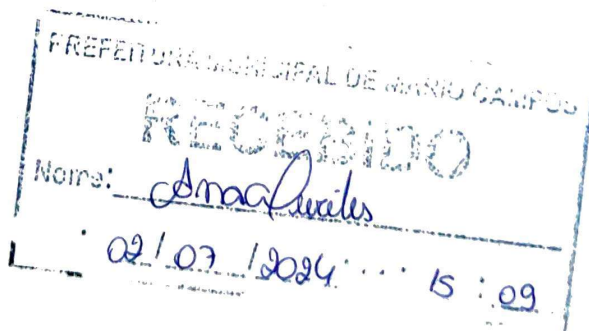 PREFEITURA MUNICIPAL DE MARIO CAMPOS
RECEBIDO
Nome:
02/07/2024 15:09